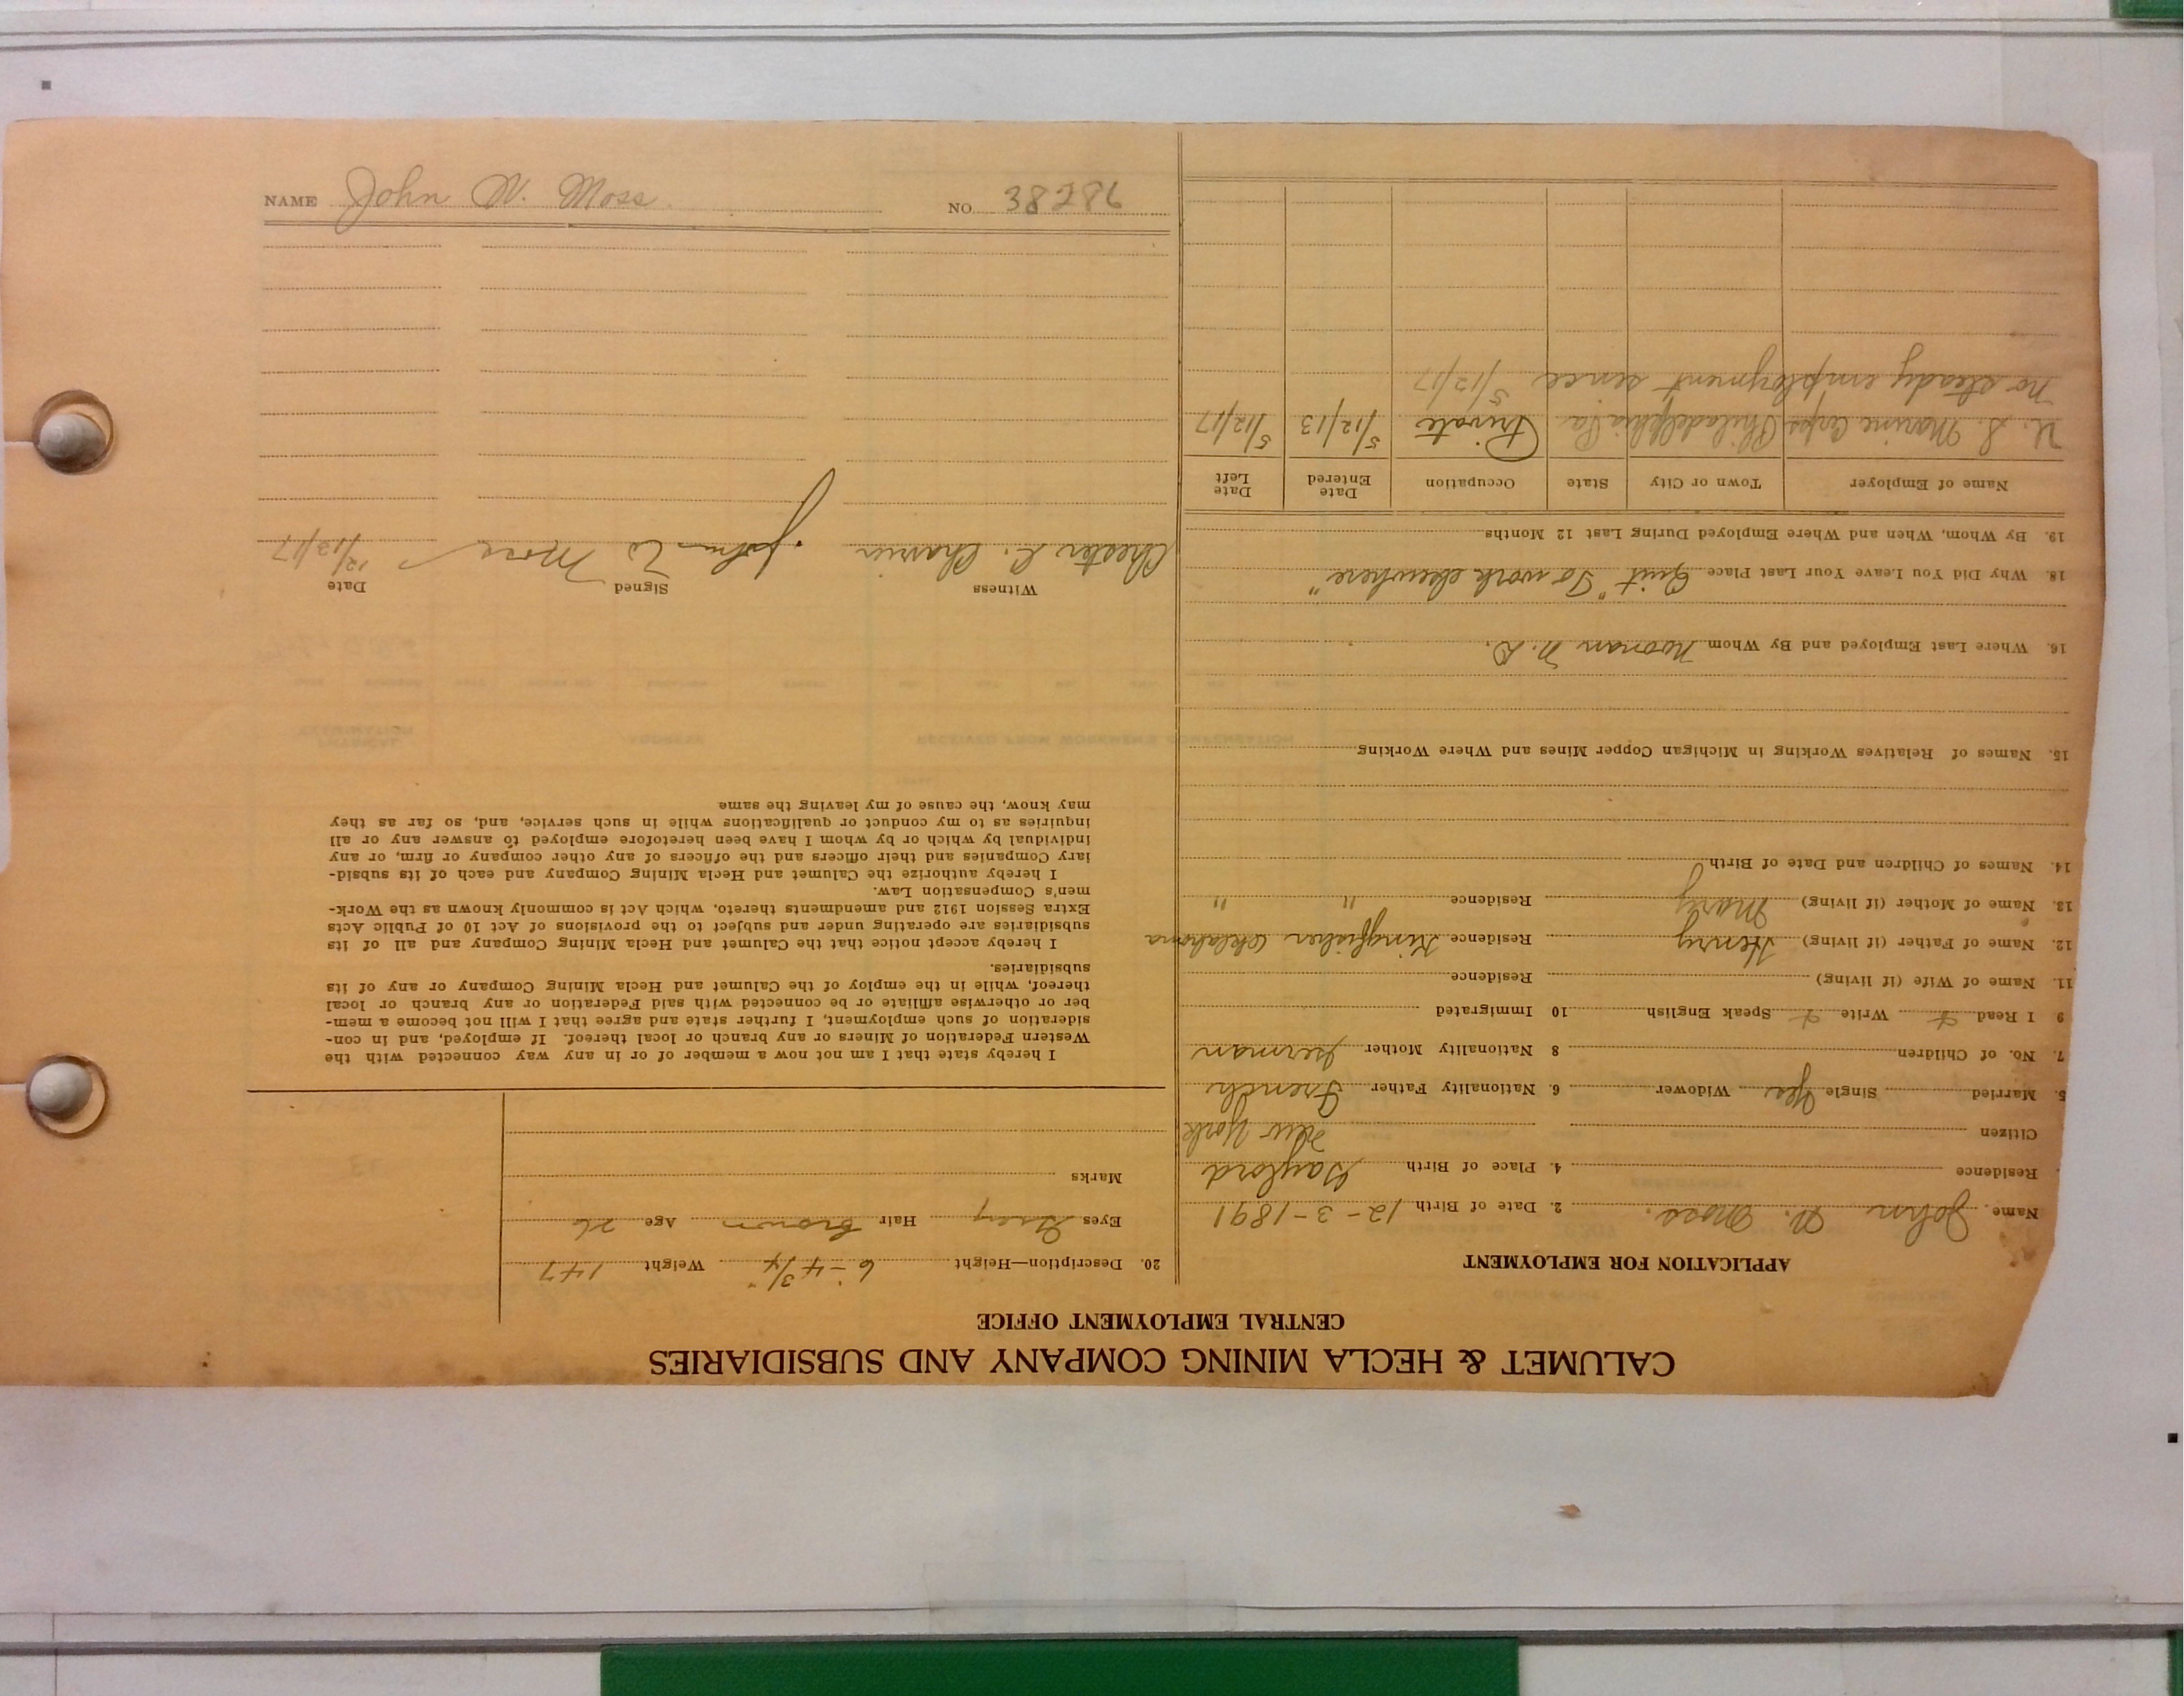 CALUMET & HECLA MINING COMPANY AND SUBSIDIARIES
CENTRAL EMPLOYMENT OFFICE
APPLICATION FOR EMPLOYMENT
Name John W. Moss. 2. Date of Birth 12-3-1891
Residence 4. Place of Birth Gaylord
Citizen New York
5. Married Single Yes Widower 6. Nationality Father French
7. No. of Children 8 Nationality Mother German
9 I Read Write Speak English 10 Immigrated
11. Name of Wife (if living) Residence
12. Name of Father (if living) Henry Residence Kingfisher Oklahoma
13. Name of Mother (if living) Mary Residence " "
14. Names of Children and Date of Birth
15. Names of Relatives Working in Michigan Copper Mines and Where Working
16. Where Last Employed and By Whom Noonan N. D.
18. Why Did You Leave Your Last Place Quit "To work elsewhere"
19. By Whom, When and Where Employed During Last 12 Months
Name of Employer Town or City State Occupation Date Entered Date Left
U. S. Marine Corps Philadelphia Pa Private 5/12/13 5/12/17
No steady employment since 5/12/17
20. Description—Height 6-4 3/4" Weight 147
Eyes Grey Hair Brown Age 26
Marks
I hereby state that I am not now a member of or in any way connected with the
Western Federation of Miners or any branch or local thereof. If employed, and in con-
sideration of such employment, I further state and agree that I will not become a mem-
ber or otherwise affiliate or be connected with said Federation or any branch or local
thereof, while in the employ of the Calumet and Hecla Mining Company or any of its
subsidiaries.
I hereby accept notice that the Calumet and Hecla Mining Company and all of its
subsidiaries are operating under and subject to the provisions of Act 10 of Public Acts
Extra Session 1912 and amendments thereto, which Act is commonly known as the Work-
men's Compensation Law.
I hereby authorize the Calumet and Hecla Mining Company and each of its subsid-
iary Companies and their officers and the officers of any other company or firm, or any
individual by which or by whom I have been heretofore employed to answer any or all
inquiries as to my conduct or qualifications while in such service, and, so far as they
may know, the cause of my leaving the same
Witness Signed Date
Chester C. John W Moss 12/13/17
NAME John W. Moss NO. 38286